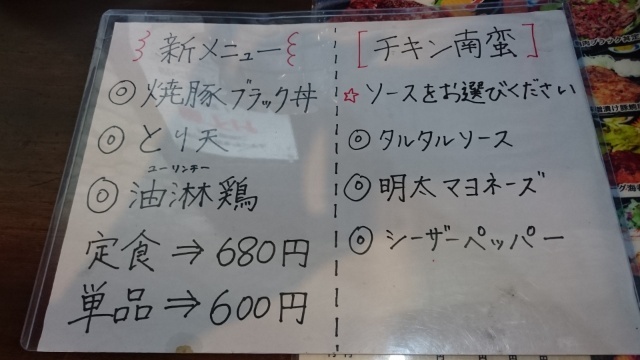 新メニュー
◎ 焼豚ブラック丼
◎ とり天
ユーリンチー
◎ 油淋鶏
定食⇒680円
単品⇒600円
[チキン南蛮]
☆ ソースをお選びください
◎ タルタルソース
◎ 明太マヨネーズ
◎ シーザーペッパー